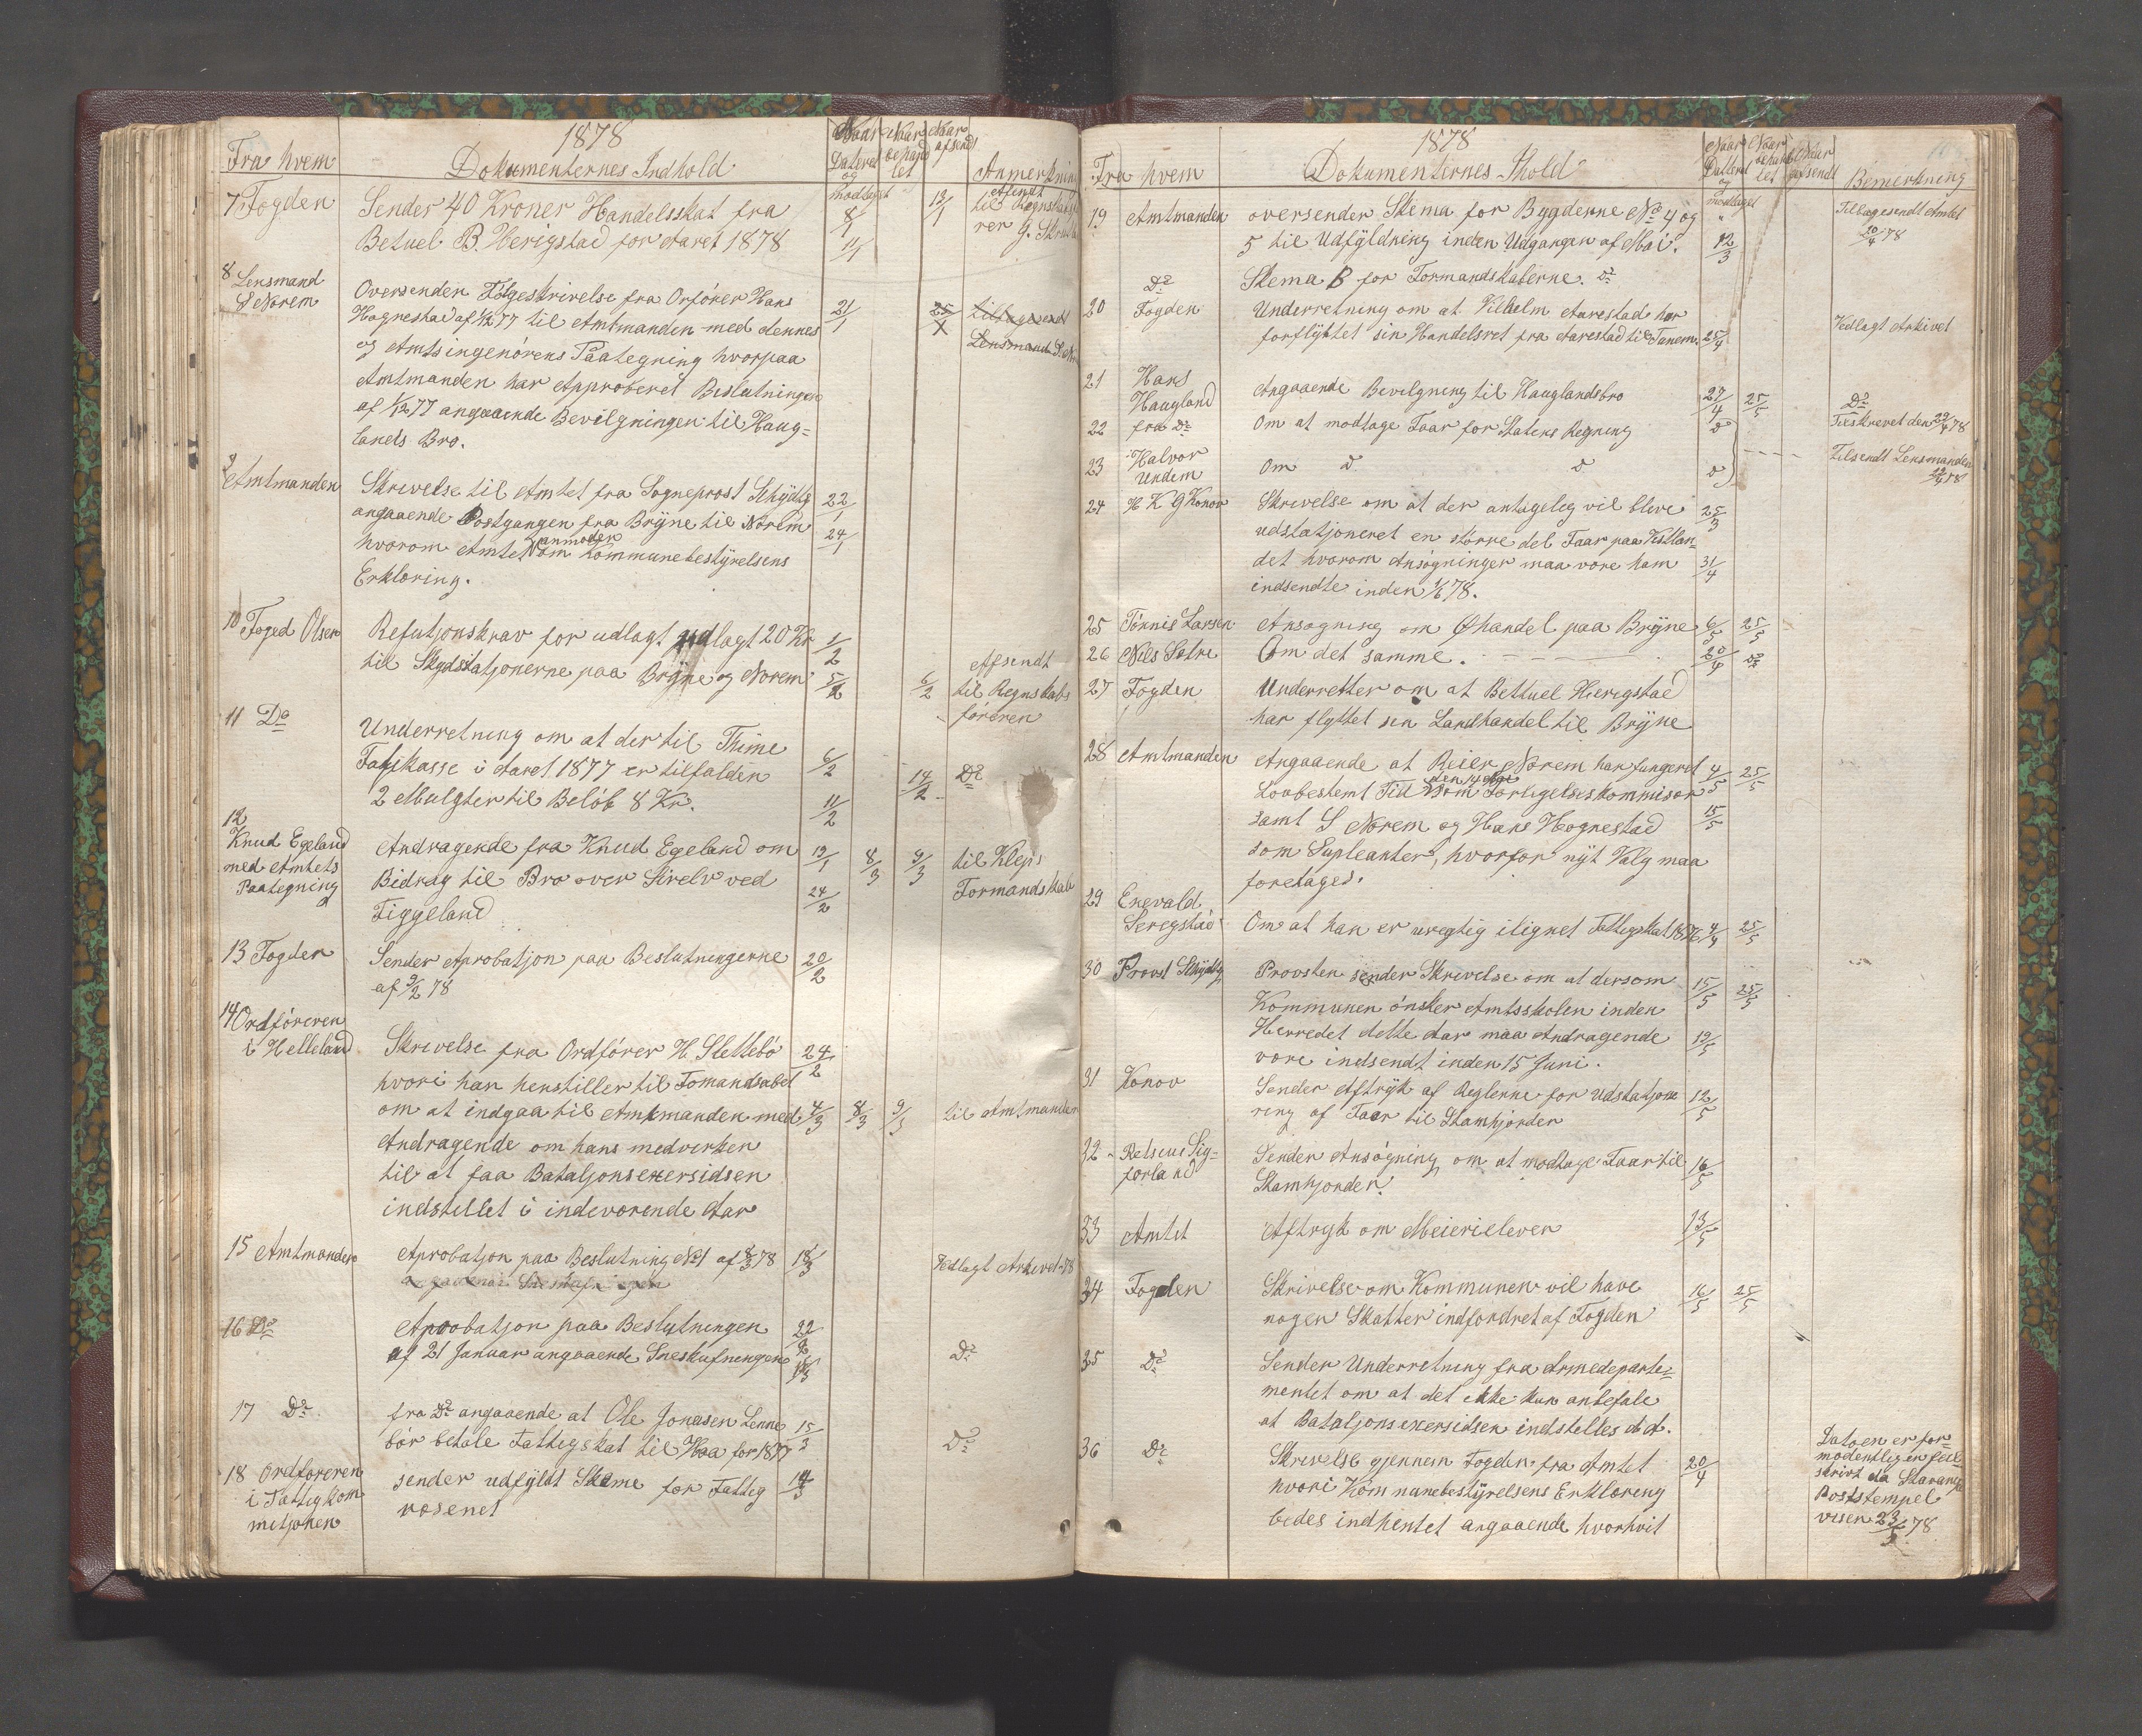 1878
Fra hvem
Dokumenternes Indhold
Naar Dateret og modtaget
Naar behandlet
Naar afsendt
Anmerkning
7 Fogden Sender 40 Kroner Handelsskat fra 8/1 13/1 Afsendt
Betuel B Herigstad for Aaret 1878 11/1 til Regnskabsfø
rer G.
8 Lensmand
S Norem Oversender Følgeskrivelse fra Orfører Hans 21/1 25/1 tilbagesendt
Hognestad af 1/12 77 til Amtmanden med dennes Lensmand S. No
og Amtsingenørens Paategning hvorpaa
Amtmanden har Approberet Beslutningen
af 1/12 77 angaaende Bevilgningen til Haug=
lands Bro.
9
Amtmanden Skrivelse til Amtet fra Sogneprost Schjdtz 22/1
angaaende Postgangen fra Bryne til Norem 24/1
anmoder
hvorom Amtet om Kommunebestyrelsens
Erkloring.
10 Foged Olsen Refutjonskrav for udlagt udlagt 20 Kr 1/2
til Skydsstatjonerne paa Bryne og Norem 5/2 6/2 Afsendt
til Regnskabs
føreren
11 Do Underretning om at der til Thime 6/2
Fatikasse i Aaret 1877 er tilfalden 14/2 Do
2 Mulgter til Beløb 8 Kr. 11/2
12
Knud Egeland Andragende fra Knud Egeland om 19/1 8/3 9/3 til Kleps
med Amtets Bidrag til Bro over Sirelv ved 24/2 Formandskab
Paategning Figgeland
13 Fogden Sender Aprobatjon paa Beslutningerne 20/2
af 9/2 78
14 Ordføreren
i Helleland Skrivelse fra Ordfører H. Slettebø 24/2
hvori han henstiller til Fomandsabet
om at indgaa til Amtmanden med 4/3 8/3 9/3 til Amtmanden
Andragende om hans medvirken
til at faa Bataljonsexersidsen
indstillet i indevorende Aar
15 Amtmanden Aprobatjon paa Beslutning No 1 af 8/3 78 18/3 Vedlagt Arkivet 78
16 Do Aprobatjon paa Beslutningen 22/2
af 21 Januar angaaende Sneskufningen 18/3 Do
17 Do fra Do angaaende at Ole Jonasen Lenne 15/3
bør betale Fattigskat til Haa for 1877 Do
18 Ordføreren sender udfyldt Skeme for Fattig 14/3
i Fattigkom vosenet
mitjonen
1878
Fra hvem
Dokumenternes Ihold
Naar Datteret og modtaget
Naar behandlet
Naar afsendt
Bemerkning
19 Amtmanden oversender Skema for Bygderne No 4 og " Tilbagesendt Amtet
5 til Udfyldning inden Udgangen af Mai. 12/3 20/4 78
Do Skema B for Formandskaberne. Do
20 Fogden Underretning om at Vilhelm Aarestad har
forflyttet sin Handelsret fra Aarestad til Tanem. 25/4 Vedlagt Arkivet
21 Hans
Haugland Angaaende Bevilgning til Hauglandsbro 27/4 25/5 Do
22 fra Do Om at modtage Faar for Statens Regning Do Tilskrevet den 29/4 78
23 Halvor
Undem Om Do Do Do Tilsendt Lensmanden
29/4 78
24 H K G Konov Skrivelse om at der antagelig vil blive 25/3
udstatjoneret en større del Faar paa Vestlan-
det hvorom Ansøgninger maa vore ham 31/4
indsendte inden 1/6 78.
25 Tønnis Larsen Ansøgning om Øhandel paa Bryne 6/5 25/5
26 Nils Sotre Om det samme. 20/4 Do
27 Fogden Underretter om at Betuel Herigstad
har flyttet sin Landhandel til Bryne
28 Amtmanden Angaaende at Reier Norem har fungeret 4/5 25/5
Lovbestemt Tid som Forligelseskommisor
samt S Norem og Hans Hognestad 15/5
som Supleanter, hvorfor nyt Valg maa
foretages.
29 Enevald
Seregstad Om at han er uregtig ilignet Fattigskat 1876 4/4 25/5
30 Provst Schjdtz Provsten sender Skrivelse om at dersom 15/5 25/5
Kommunen ønsker Amtsskolen inden
Herredet dette Aar maa Andragende 19/5
vore indsendt inden 15 Juni.
31 Konov Sender Aftryk af Reglerne for Udstatjone
ring af Faar til Stamhjorden 12/5
32 Retsius Sig=
forland Sender Ansøgning om at modtage Faar til 16/5
Stamhjorden.
33 Amtet Aftryk om Meierielever 13/5
34 Fogden Skrivelse om Kommunen vil have 16/5 25/5
nogen Skatter indfordret af Fogden
35 Do Sender Underretning fra Armedeparte=
mentet om at det ikke kan anbefale
at Bataljonsexersidsen indstilles d. A.
36 Do Skrivelse gjennem Fogden fra Amtet 20/4
hvori Kommunebestyrelsens Erkloring
bedes indhentet angaaende hvorhvit
Datoen er for=
modentlig en feil
skrivt da Stavang
Poststempel
viser 23/5 78